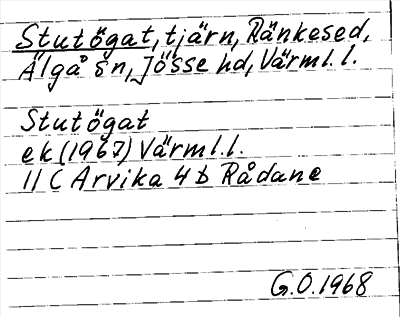 Stutögat, tjärn, Ränkesed,
Älgå sn, Jösse hd, Värml. l.
Stutögat
ek (1967) Värml. l.
11 C Arvika 4 b Rådane
G.O. 1968